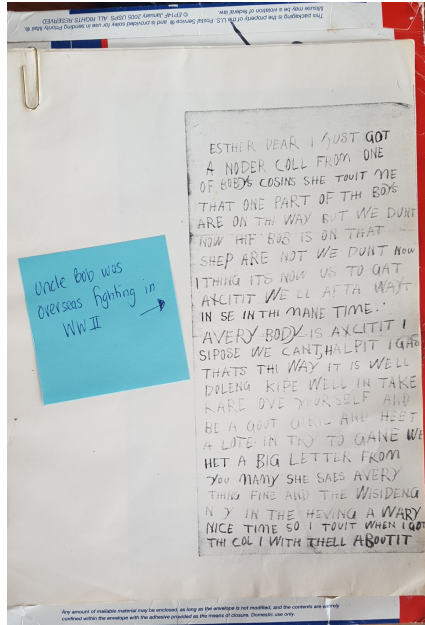 This packaging is the property of the U.S. Postal Service® and is provided solely for use in sending Priority Mail®
Misuse may be a violation of federal law.
© EP14F January 2005 USPS ALL RIGHTS RESERVED
ESTHER DEAR I JUST GOT
A NODER COLL FROM ONE
OF BOBYS COSINS SHE TOUIT ME
THAT ONE PART OF THI BOYS
ARE ON THI WAY BUT WE DUNT
NOW HIF BOB IS ON THAT
SHEP ARE NOT WE DUNT NOW
I THING ITS NOW US TO GAT
AXCITIT WE LL AFTA WAYT
IN SE IN THI MANE TIME.
AVERY BODY IS AXCITIT I
SIPOSE WE CANT HALPIT I GAS
THATS THI WAY IT IS WELL
DOLENG KIPE WELL IN TAKE
KARE OVE YOURSELF AND
BE A GOUT GIRL AND HEET
A LOTE IN TRY TO GANE WE
HET A BIG LETTER FROM
YOU MAMY SHE SAES AVERY
THING FINE AND THE WISIDENG
N Y IN THE HEVING A WARY
NICE TIME SO I TOUIT WHEN I GOT
THI COL I WITH THELL ABOUTIT
Uncle Bob was
overseas fighting in
WW II
Any amount of mailable material may be enclosed, as long as the envelope is not modified, and the contents are entirely
confined within the envelope with the adhesive provided as the means of closure. Domestic use only.